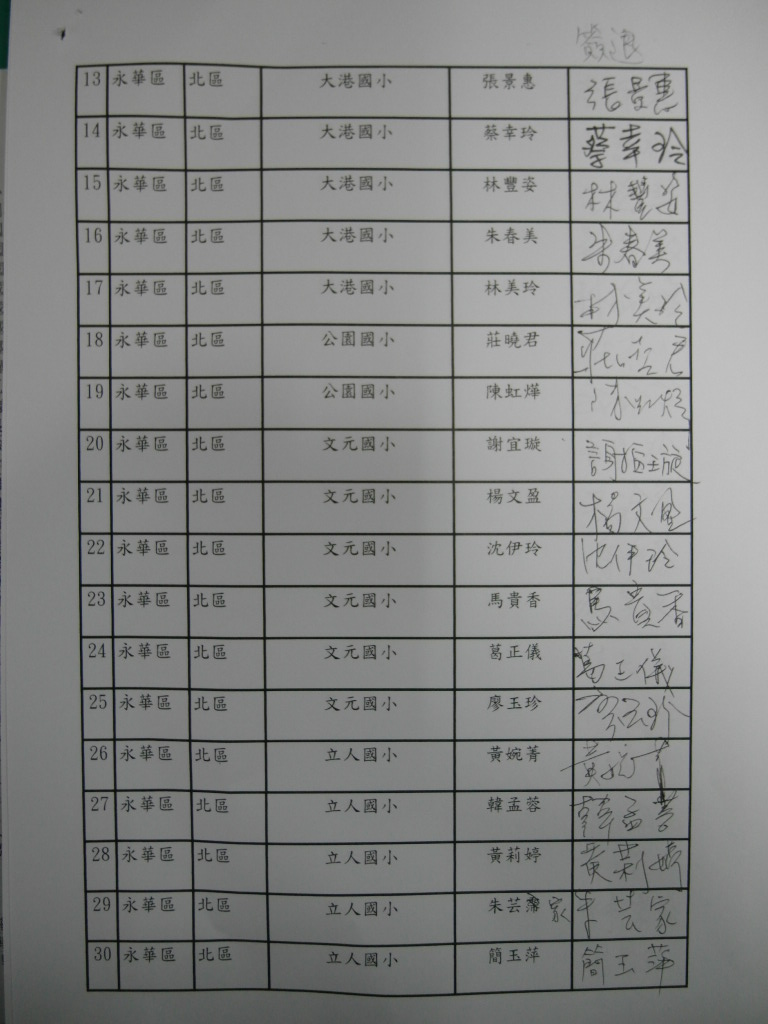 簽退
13 永華區 北區 大港國小 張景惠 張景惠
14 永華區 北區 大港國小 蔡幸玲 蔡幸玲
15 永華區 北區 大港國小 林豐姿 林豐姿
16 永華區 北區 大港國小 朱春美 朱春美
17 永華區 北區 大港國小 林美玲 林美玲
18 永華區 北區 公園國小 莊曉君 莊曉君
19 永華區 北區 公園國小 陳虹燁 陳虹燁
20 永華區 北區 文元國小 謝宜璇 謝宜璇
21 永華區 北區 文元國小 楊文盈 楊文盈
22 永華區 北區 文元國小 沈伊玲 沈伊玲
23 永華區 北區 文元國小 馬貴香 馬貴香
24 永華區 北區 文元國小 葛正儀 葛正儀
25 永華區 北區 文元國小 廖玉珍 廖玉珍
26 永華區 北區 立人國小 黃婉菁 黃婉菁
27 永華區 北區 立人國小 韓孟蓉 韓孟蓉
28 永華區 北區 立人國小 黃莉婷 黃莉婷
29 永華區 北區 立人國小 朱芸 家 朱芸家
30 永華區 北區 立人國小 簡玉萍 簡玉萍